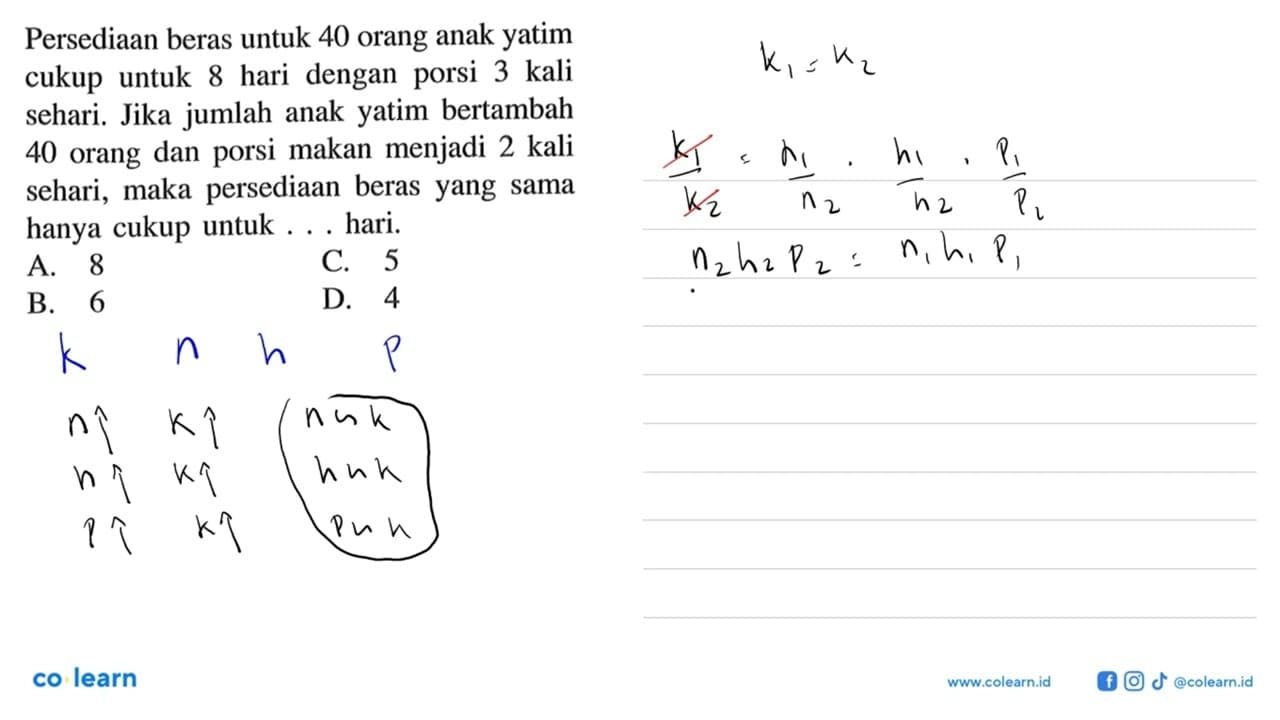 Persediaan beras untuk 40 orang anak yatim
cukup untuk 8 hari dengan porsi 3 kali
sehari. Jika jumlah anak yatim bertambah
40 orang dan porsi makan menjadi 2 kali
sehari, maka persediaan beras yang sama
hanya cukup untuk . . . hari.
A. 8 C. 5
B. 6 D. 4
k n h p
n↑ k↑ n ∽ k
h↑ k↑ h ∽ k
p↑ k↑ p ∽ k
k₁ = k₂
k₁/k₂ = n₁/n₂ . h₁/h₂ . p₁/p₂
n₂h₂p₂ = n₁h₁p₁
co learn
www.colearn.id @colearn.id